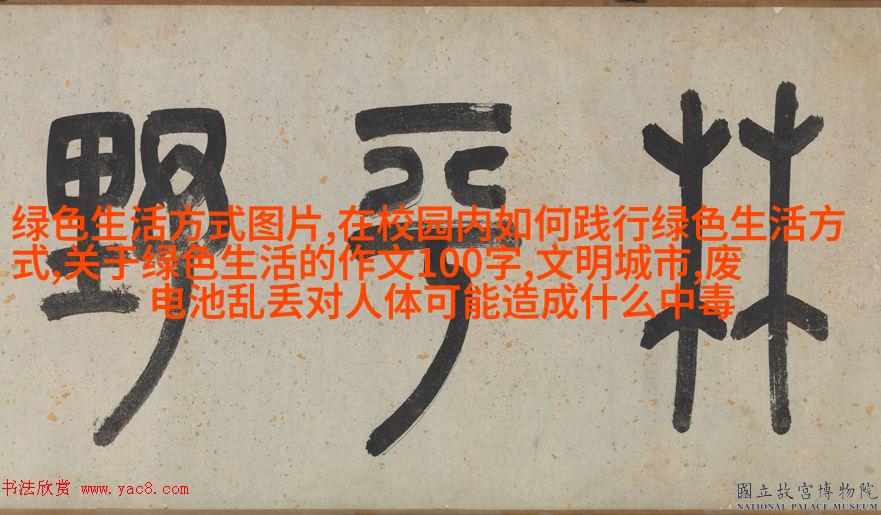 林 野
绿色生活方式图片,在校园内如何践行绿色生活方
式,关于绿色生活的作文100字,文明城市,废
电池乱丢对人体可能造成什么中毒
书法欣赏 www.yac8.com
國立故宮博物院
NATIONAL PALACE MUSEUM